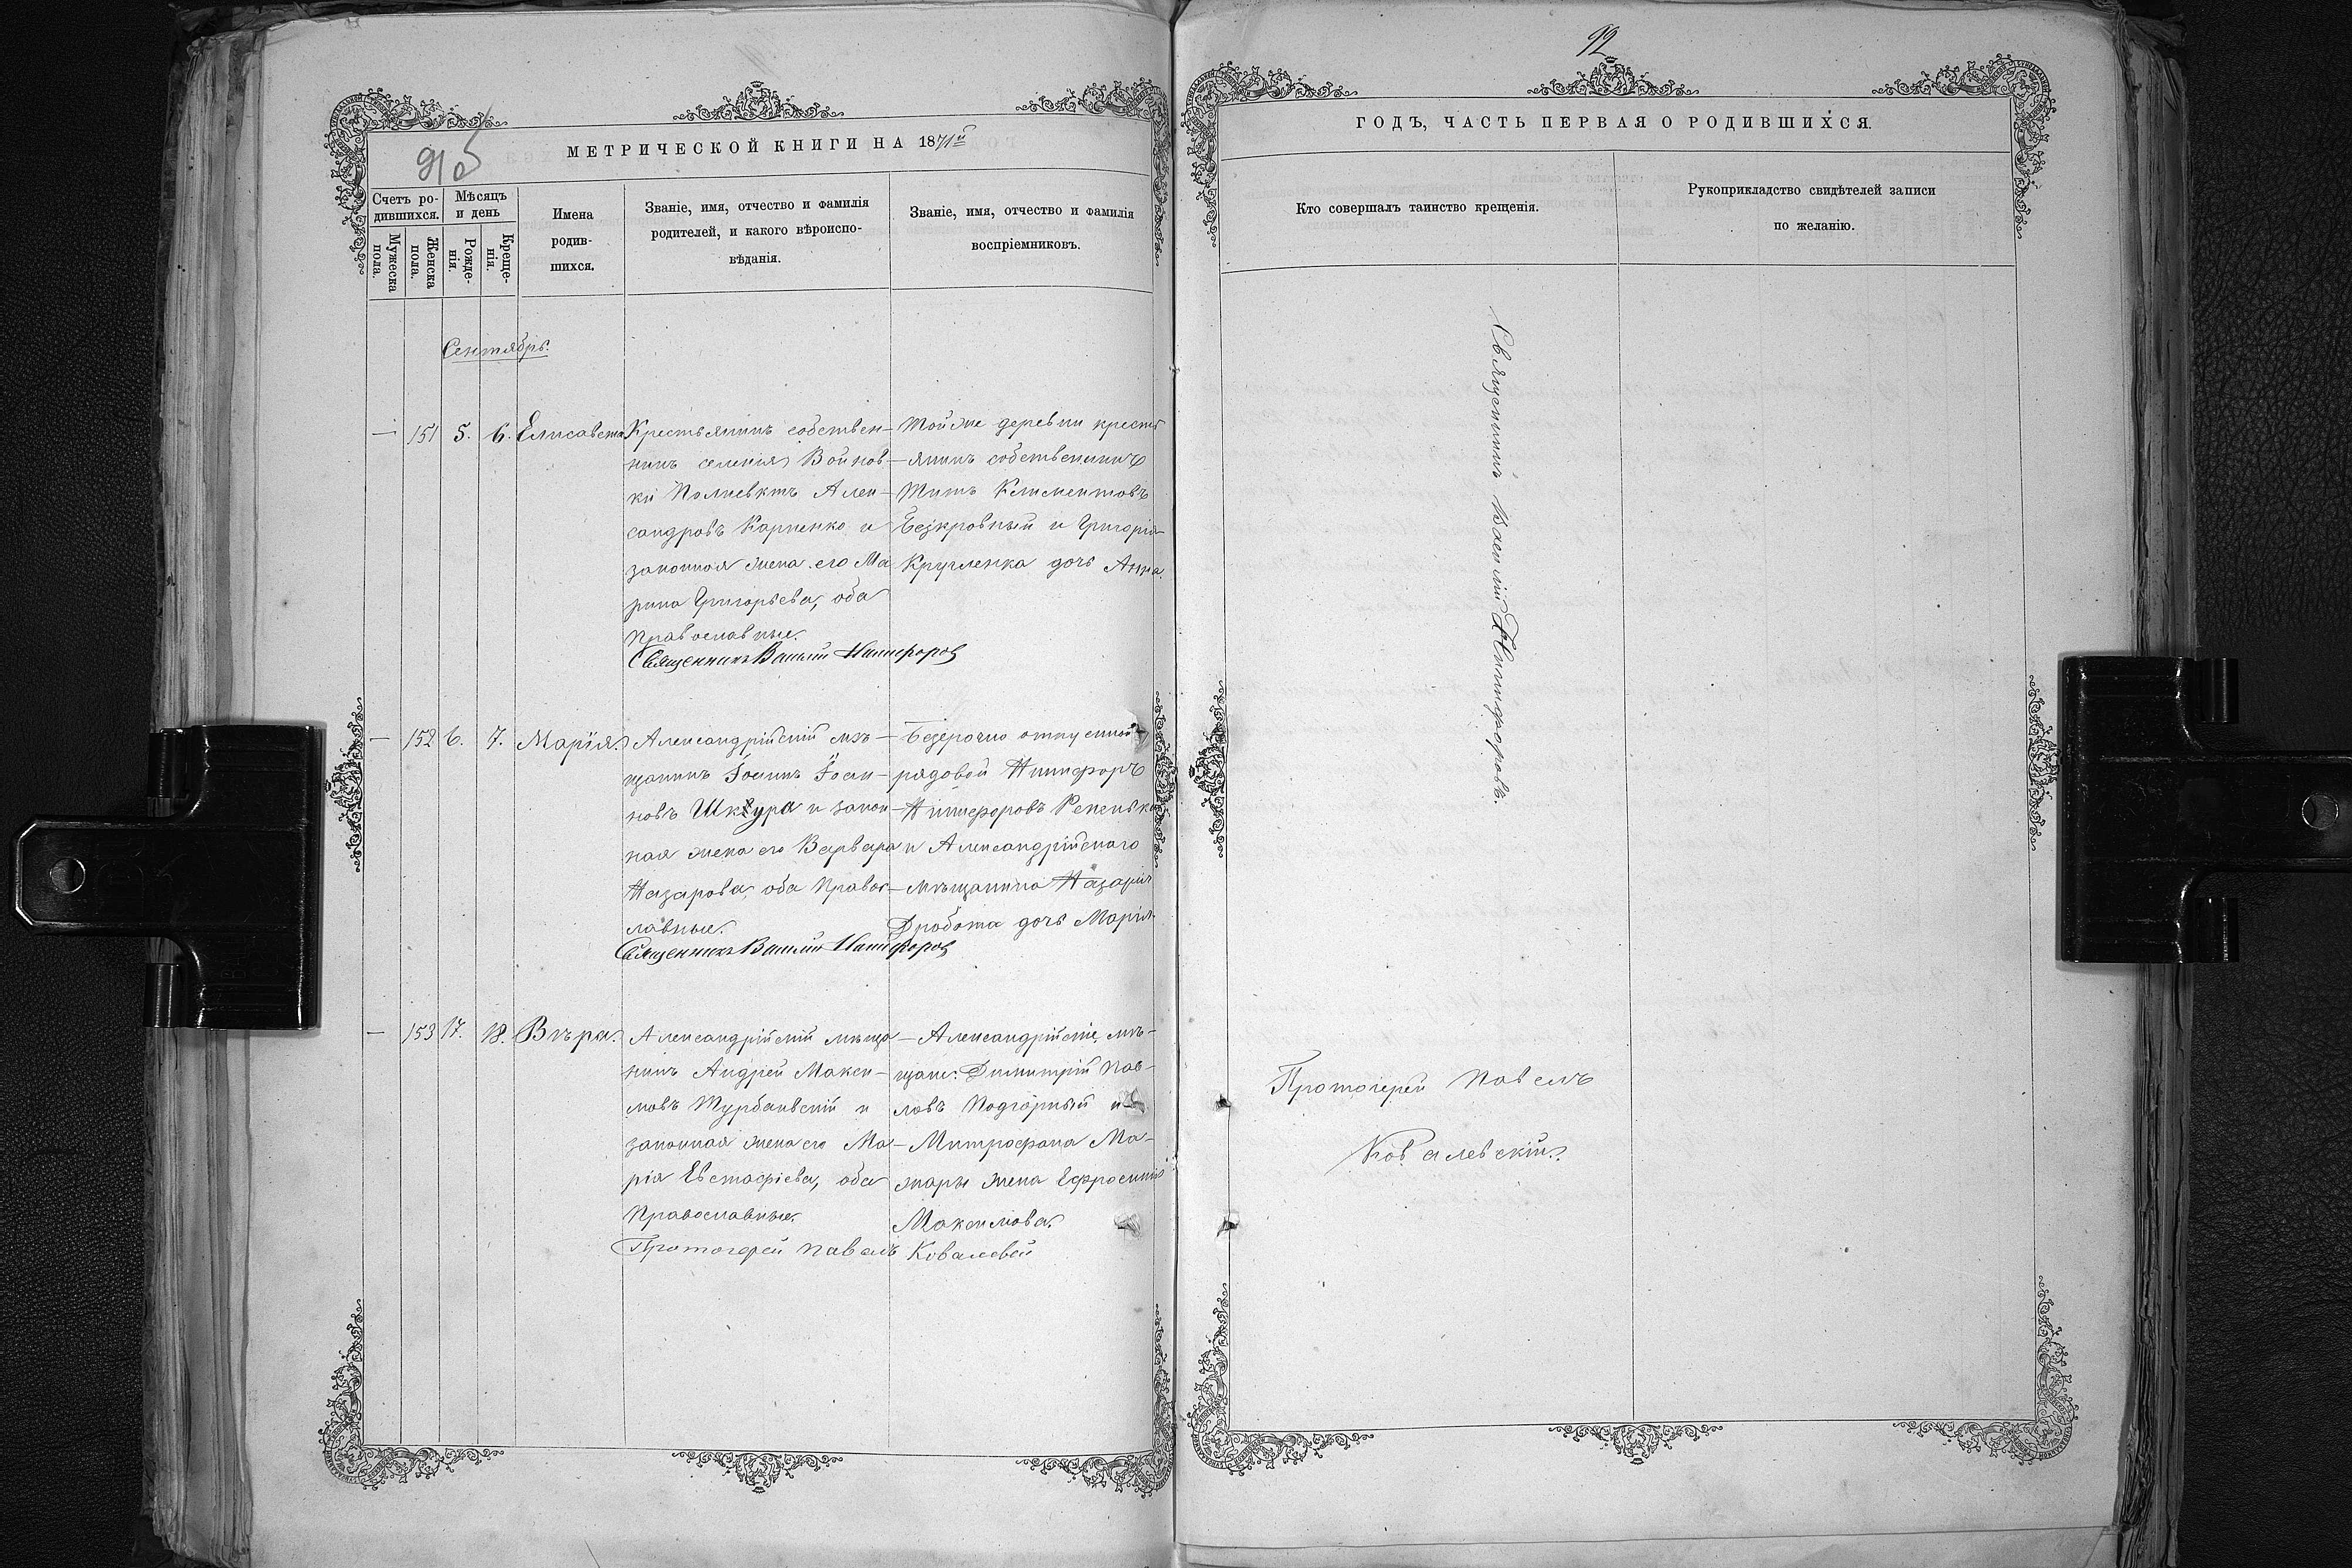 91 об
МЕТРИЧЕСКОЙ КНИГИ НА 1871й
Счетъ ро-
дившихся.
Мужеска
пола.
Женска
пола.
Мѣсяцъ
и день
Рожде-
нія.
Креще-
нія.
Имена
родив-
шихся.
Званіе, имя, отчество и фамилія
родителей, и какого вѣроиспо-
вѣданія.
Званіе, имя, отчество и фамилія
воспріемниковъ.
Сентябрь.
— 151 5. 6. Елисавета
Крестьянинъ собствен-
никъ селенія Войнов-
ки Полиевктъ Алек-
сандровъ Карпенко и
законная жена его Ма
рина Григорьева, оба
Православные.
Священникъ Василій Никифоровъ
Той же деревни кресть
янинъ собственникъ
Титъ Климентовъ
Безкровный и Григорія
Кругленка дочь Анна.
— 152 6. 7. Марія.
Александрійскій мѣ-
щанинъ Іоаннъ Іоан-
новъ Шкура и закон-
ная жена его Варвара
Назарова, оба Правос-
лавные.
Священникъ Василій Никифоровъ
Безсрочно отпускной
рядовой Никифоръ
Никифоровъ Репенько
и Александрійскаго
мѣщанина Назарія
Дробота дочь Марія.
— 153 17. 18. Вѣра.
Александрійскій мѣща
нинъ Андрей Макси-
мовъ Турбаивскій и
законная жена его Ма-
рія Евстафіева, оба
Православные.
Протоіерей Павелъ Ковалевскій
Александрійскіе мѣ-
щане: Димитрій Пав-
ловъ Подгорный и
Митрофана Ма-
жары жена Ефросинія
Максимова.
92
ГОДЪ, ЧАСТЬ ПЕРВАЯ О РОДИВШИХСЯ.
Кто совершалъ таинство крещенія.
Рукоприкладство свидѣтелей записи
по желанію.
Священникъ Василій Никифоровъ.
Протоіерей Павелъ
Ковалевскій.